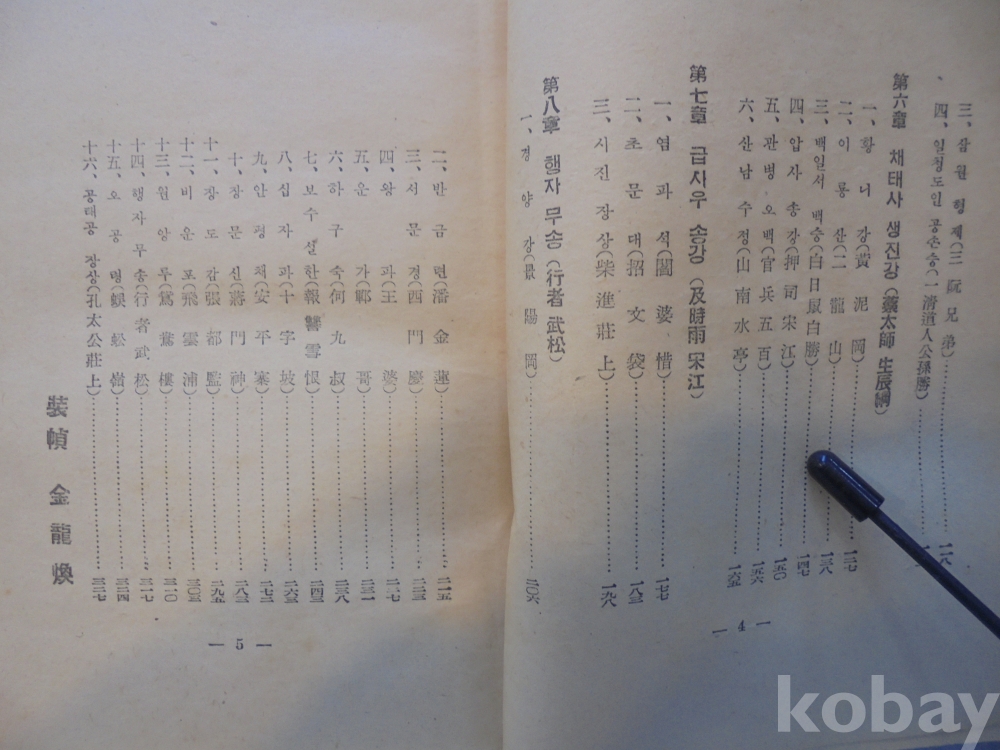 三、삼원형제(三阮兄弟)
四、일청도인 공손승(一清道人公孫勝)
第六章 채태사 생진강(蔡太師 生辰綱)
一、황니강(黃泥岡)……一二七
二、이룡산(二龍山)……一三八
三、백일서 백승(白日鼠白勝)……一四七
四、압사송강(押司宋江)……一五〇
五、관병오백(官兵五百)……一五六
六、산남수정(山南水亭)
第七章 급시우 송강(及時雨 宋江)
一、염파석(閻婆惜)……一七七
二、초문대(招文袋)……一八三
三、시진장상(柴進莊上)……一九八
第八章 행자 무송(行者 武松)
一、경양강(景陽岡)……二〇六
— 4 —
二、반금련(潘金蓮)……二一五
三、서문경(西門慶)……二二三
四、왕파(王婆)……二二七
五、운가(鄆哥)……二三一
六、하구숙(何九叔)……二三八
七、보수설한(報讐雪恨)……二四三
八、십자파(十字坡)……二六三
九、안평채(安平寨)……二七三
十、장문신(蔣門神)……二八三
十一、장도감(張都監)……二九五
十二、비운포(飛雲浦)……三〇三
十三、원앙루(鴛鴦樓)……三一〇
十四、행자무송(行者武松)……三一七
十五、오공령(蜈蚣嶺)……三二四
十六、공태공 장상(孔太公莊上)……三二七
裝幀 金龍煥
— 5 —
kobay